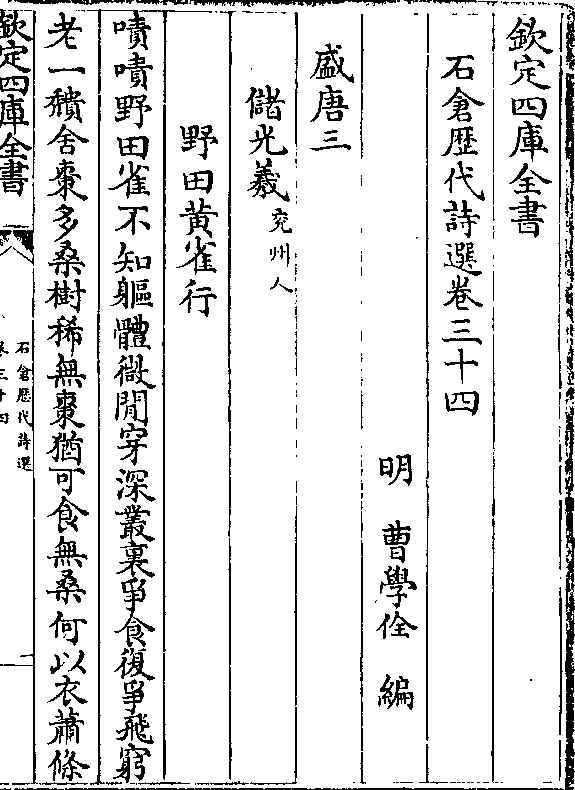 欽定四庫全書
石倉歴代詩選卷三十四
明　曹學佺　編
盛唐三
儲光羲兖州人
野田黄雀行
嘖嘖野田雀不知軀體微閒穿深叢裏爭食復爭飛窮
老一穨舍棗多桑樹稀無棗猶可食無桑何以衣蕭條
欽定四庫全書
石倉歴代詩選
卷三十四
一